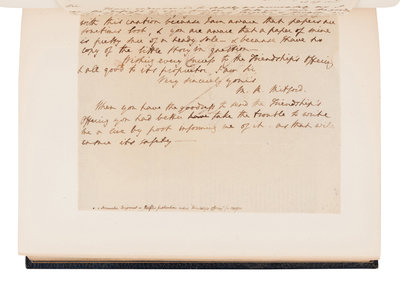 with this caution because I am aware that papers are
sometimes lost, & you are aware that a paper of mine
is pretty sure of a ready sale - & because I have no
copy of the little story in question -
Wishing every success to the Friendship's Offering
& all good to its proprietor, I am Sir
Very sincerely yours
M. R. Mitford.
When you have the goodness to send the Friendship's
Offering you had better have take the trouble to write
me a line by post informing me of it - as that will
insure its safety -